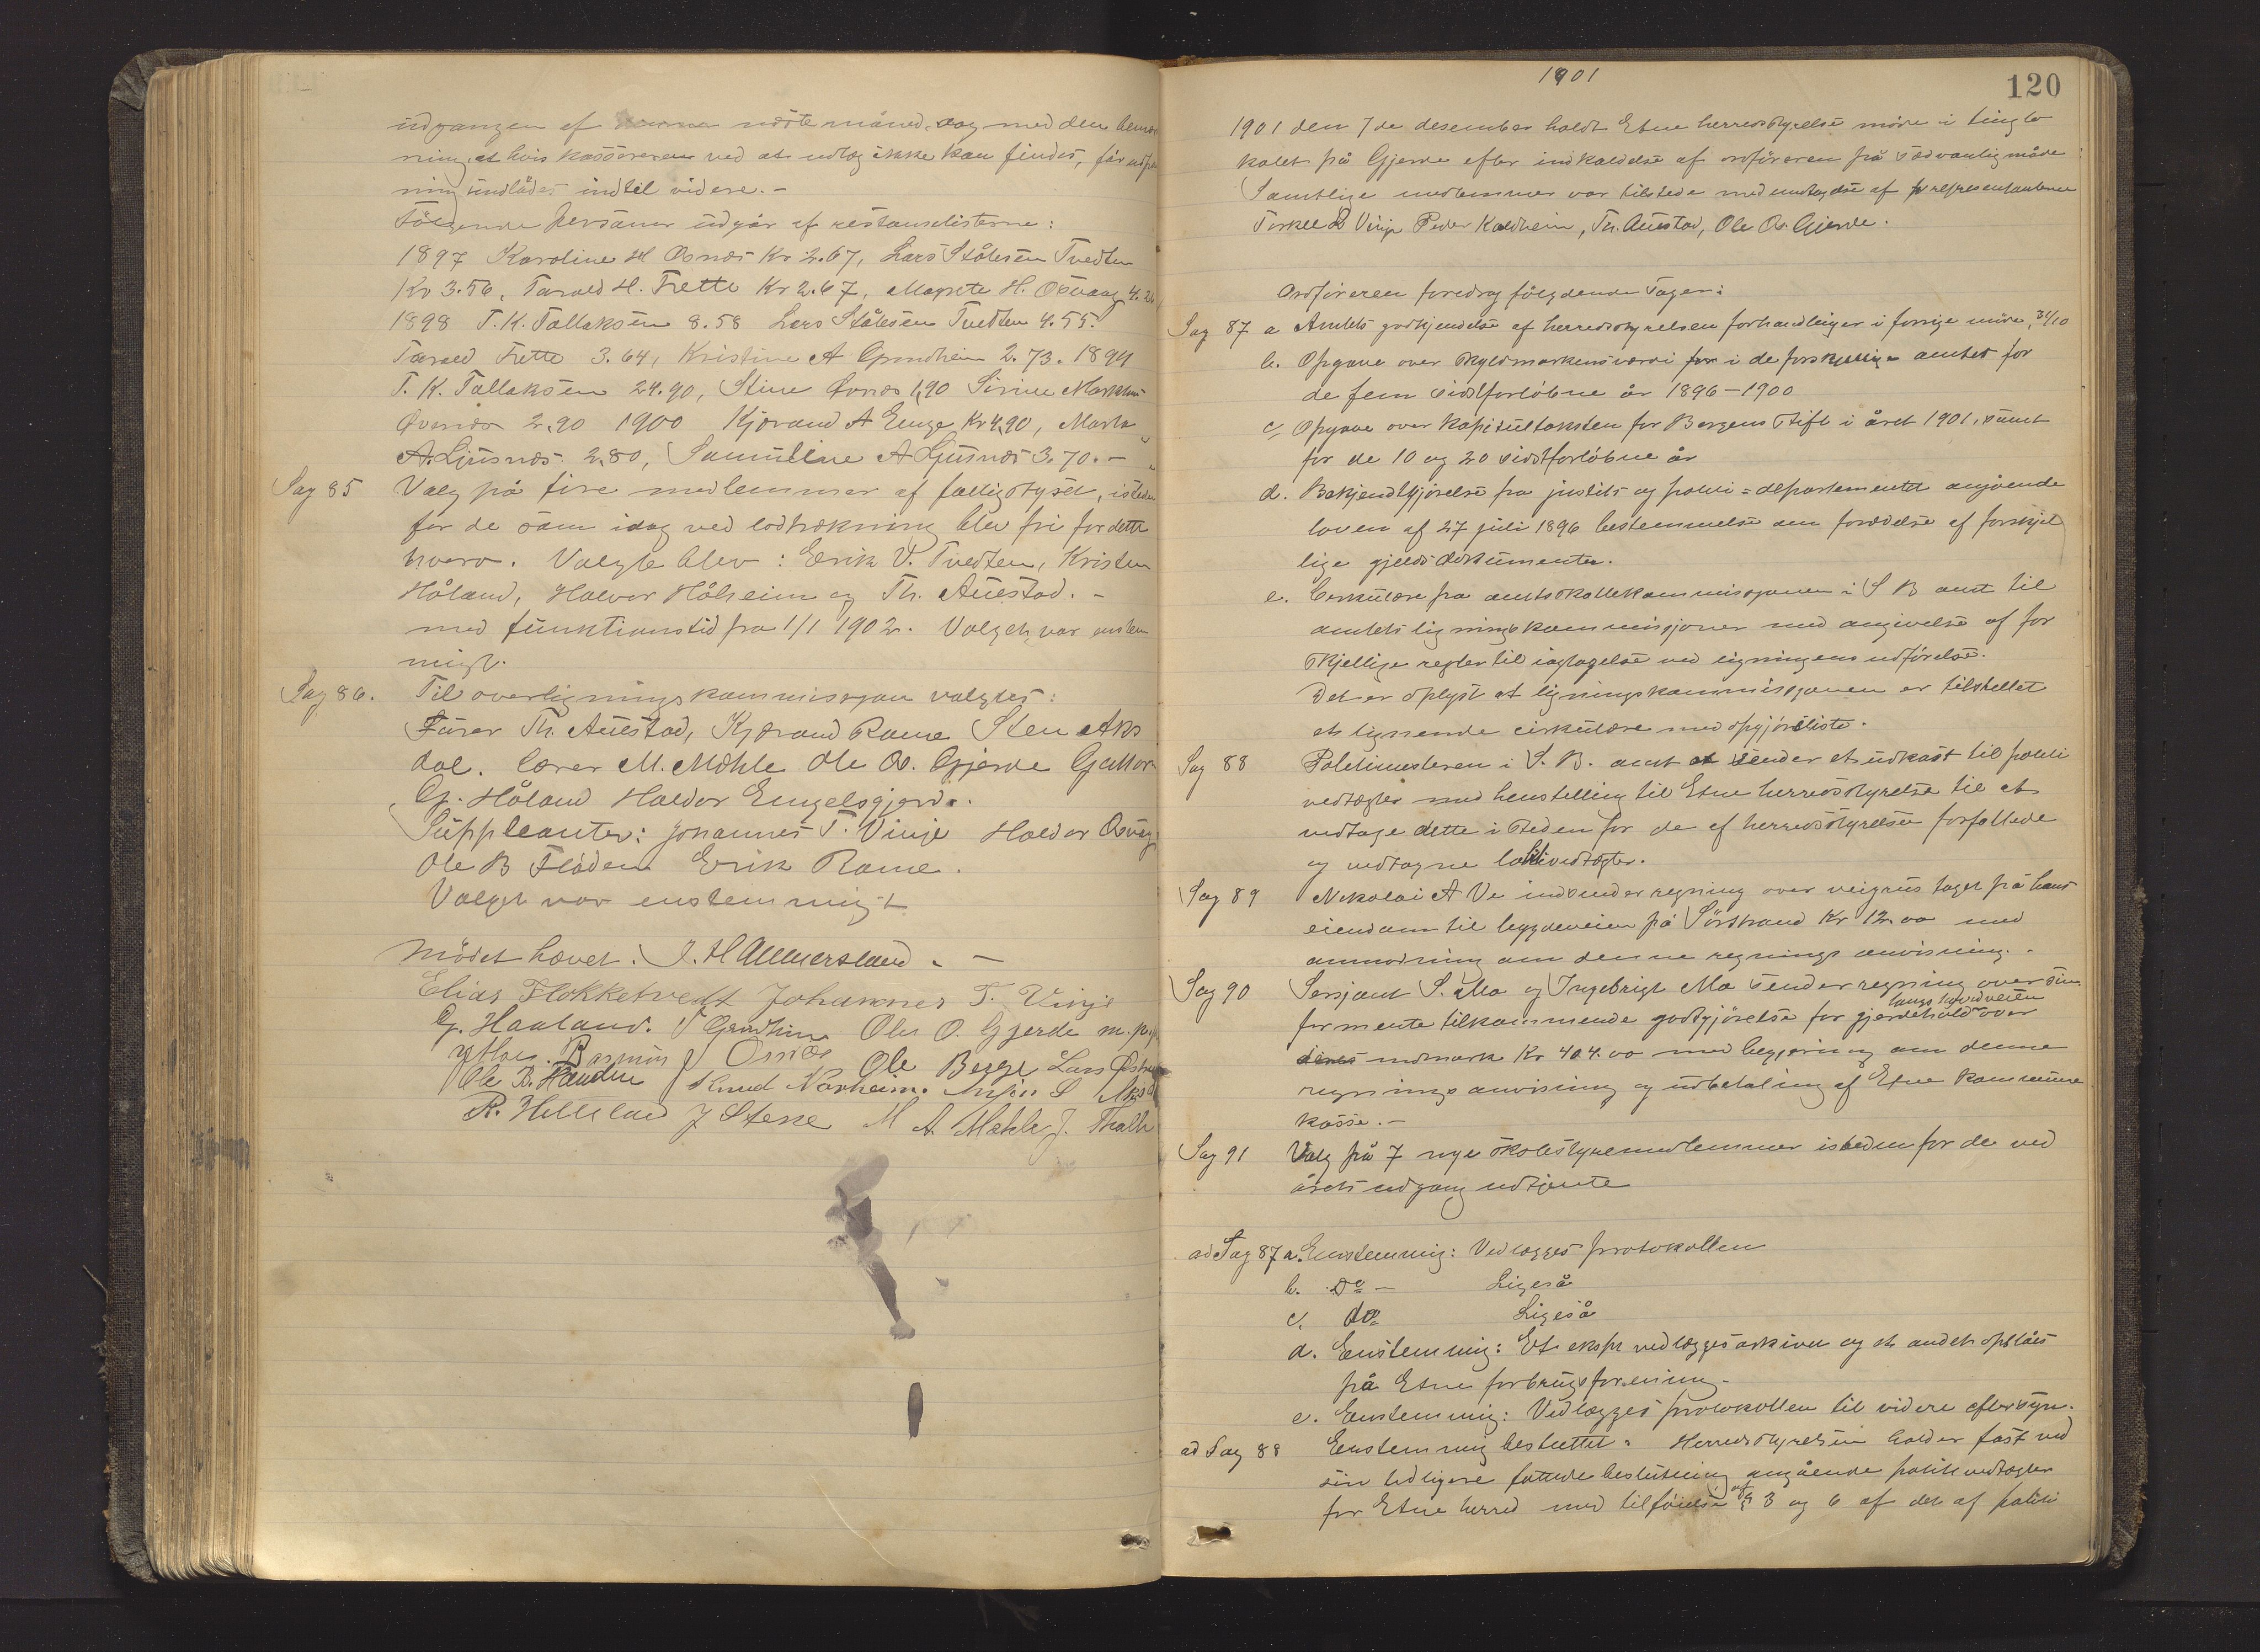 udgangen af næste måned, dog med den bemærk
ning, at hvis kassereren ved at udlæg ikke kan findes, får udpan
ning undlades indtil videre. -
Følgende personer udgår af restanselisterne:
1897 Karoline H Osnæs Kr 2.67, Lars Ståleson Tvedten
Kr 3.56, Tarald H. Frette Kr 2.67, Magrete H. Osvaag 4.20
1898 T. K. Tallaksen 8.58 Lars Ståleson Tvedten 4.55.
Tarald Frette 3.64, Kristine A Grindheim 2.73. 1899
T. K. Tallaksen 24.90, Stine Osnæs 1,90 Sirine Markhus
Øvernæs 2.90 1900 Kjørand A Enge Kr 4,90, Marta
A. Ljusnæs 2,80, Samueline A Ljusnæs 3.70. -
Sag 85 Valg på fire medlemmer af fattigstyret, isteden
for de som idag ved lodtrækning blev fri for dette
hverv. Valgte blev: Erik V. Tvedten, Kristen
Håland, Halvor Håheim og Th. Austad. -
med funktionstid fra 1/1 1902. Valget var enstem
migt.
Sag 86. Til overligningskommissjon valgtes:
Lærer Th. Austad, Kjørand Rame Sten Aks
dal. Lærer M. Mæhle Ole O. Gjerde Guttor
G. Håland Haldor Engelsgjerd.
Suppleanter: Johannes T. Vinje Haldor Osvåg
Ole B Fløden Erik Rame.
Valget var enstemmigt
Mødet hævet. J. Hammersland. -
Elias Flokketvedt Johannes T. Vinje
G. Haaland. Grindheim Ole O. Gjerde m.p.p.
Rasmus J Osnæs Ole Berge Lars
Ole B. Knud Norheim. S Aksd
R. Hellesland J Stene M A Mæhle J.
1901
120
1901 den 7de desember holdt Etne herredsstyrelse møde i tinglo
kalet på Gjerde efter indkaldelse af ordføreren på sædvanlig måde
Samtlige medlemmer var tilstede med undtagelse af repræsentanterne
Torkel D Vinje Peder Kaldheim, Th. Austad, Ole O. Gjerde.
Ordføreren foredrog følgdende sager:
Sag 87 a Amtets godkjendelse af herredsstyrelsen forhandlinger i forrige møde, 31/10
b. Opgave over skyldmarkensværdi for i de forskjellige amter for
de fem sidstforløbne år 1896-1900
c, Opgave over kapitultaksten for Bergens Stift i året 1901, samt
for de 10 og 20 sidstforløbne år
d. Bekjendtgjørelse fra justits og politi=departementet angående
loven af 27 juli 1896 bestemmelse om forældelse af forskjel
lige gjeldsdokumenter.
e. Cirkulære fra amtsskattekommissjonen i S B amt til
amtets ligningskommissjoner med angivelse af for
skjellige regler til iagtagelse ved ligningens udførelse.
Det er oplyst at ligningskommissjonen er tilstillet
et lignende cirkulære med opgjørsliste.
Sag 88 Politimesteren i S. B. amt sender et udkast til politi
vedtægter med henstelling til Etne herredsstyrelse til at
vedtage dette i steden for de af herredsstyrelsen forfattede
og vedtagne politivedtægter.
Sag 89 Nikolai A Ve indsender regning over veigrus taget på hans
eiendom til bygdeveien på Sørstrand Kr 12.00 med
anmodning om denne regnings anvisning. -
Sag 90 Sersjant S. Mo og Ingebrigt Mo sender regning over sin
formente tilkommende godtgjørelse for gjerdehold langs hovedveien over
deres indmark Kr 404.00 med begjæring om denne
regnings anvisning og udbetaling af Etne kommune
kasse. -
Sag 91 Valg på 7 nye skolestyremedlemmer isteden for de ved
årets udgang udtjente
ad Sag 87 a. Enstemmig: Vedlægges protokollen
b. Do - Ligeså
c, do Ligeså
d. Enstemmig: Et ekspl vedlægges arkivet og et andet opslåes
på Etne forbrugsforening.
e. Enstemmig: Vedlægges protokollen til videre eftersyn.
ad Sag 88 Enstemmig besluttet: Herredsstyrelsen holder fast ved
sin tidligere fattede beslutning angående politivedtægter
for Etne herred med tilføielse af § 3 og 6 af det af politi